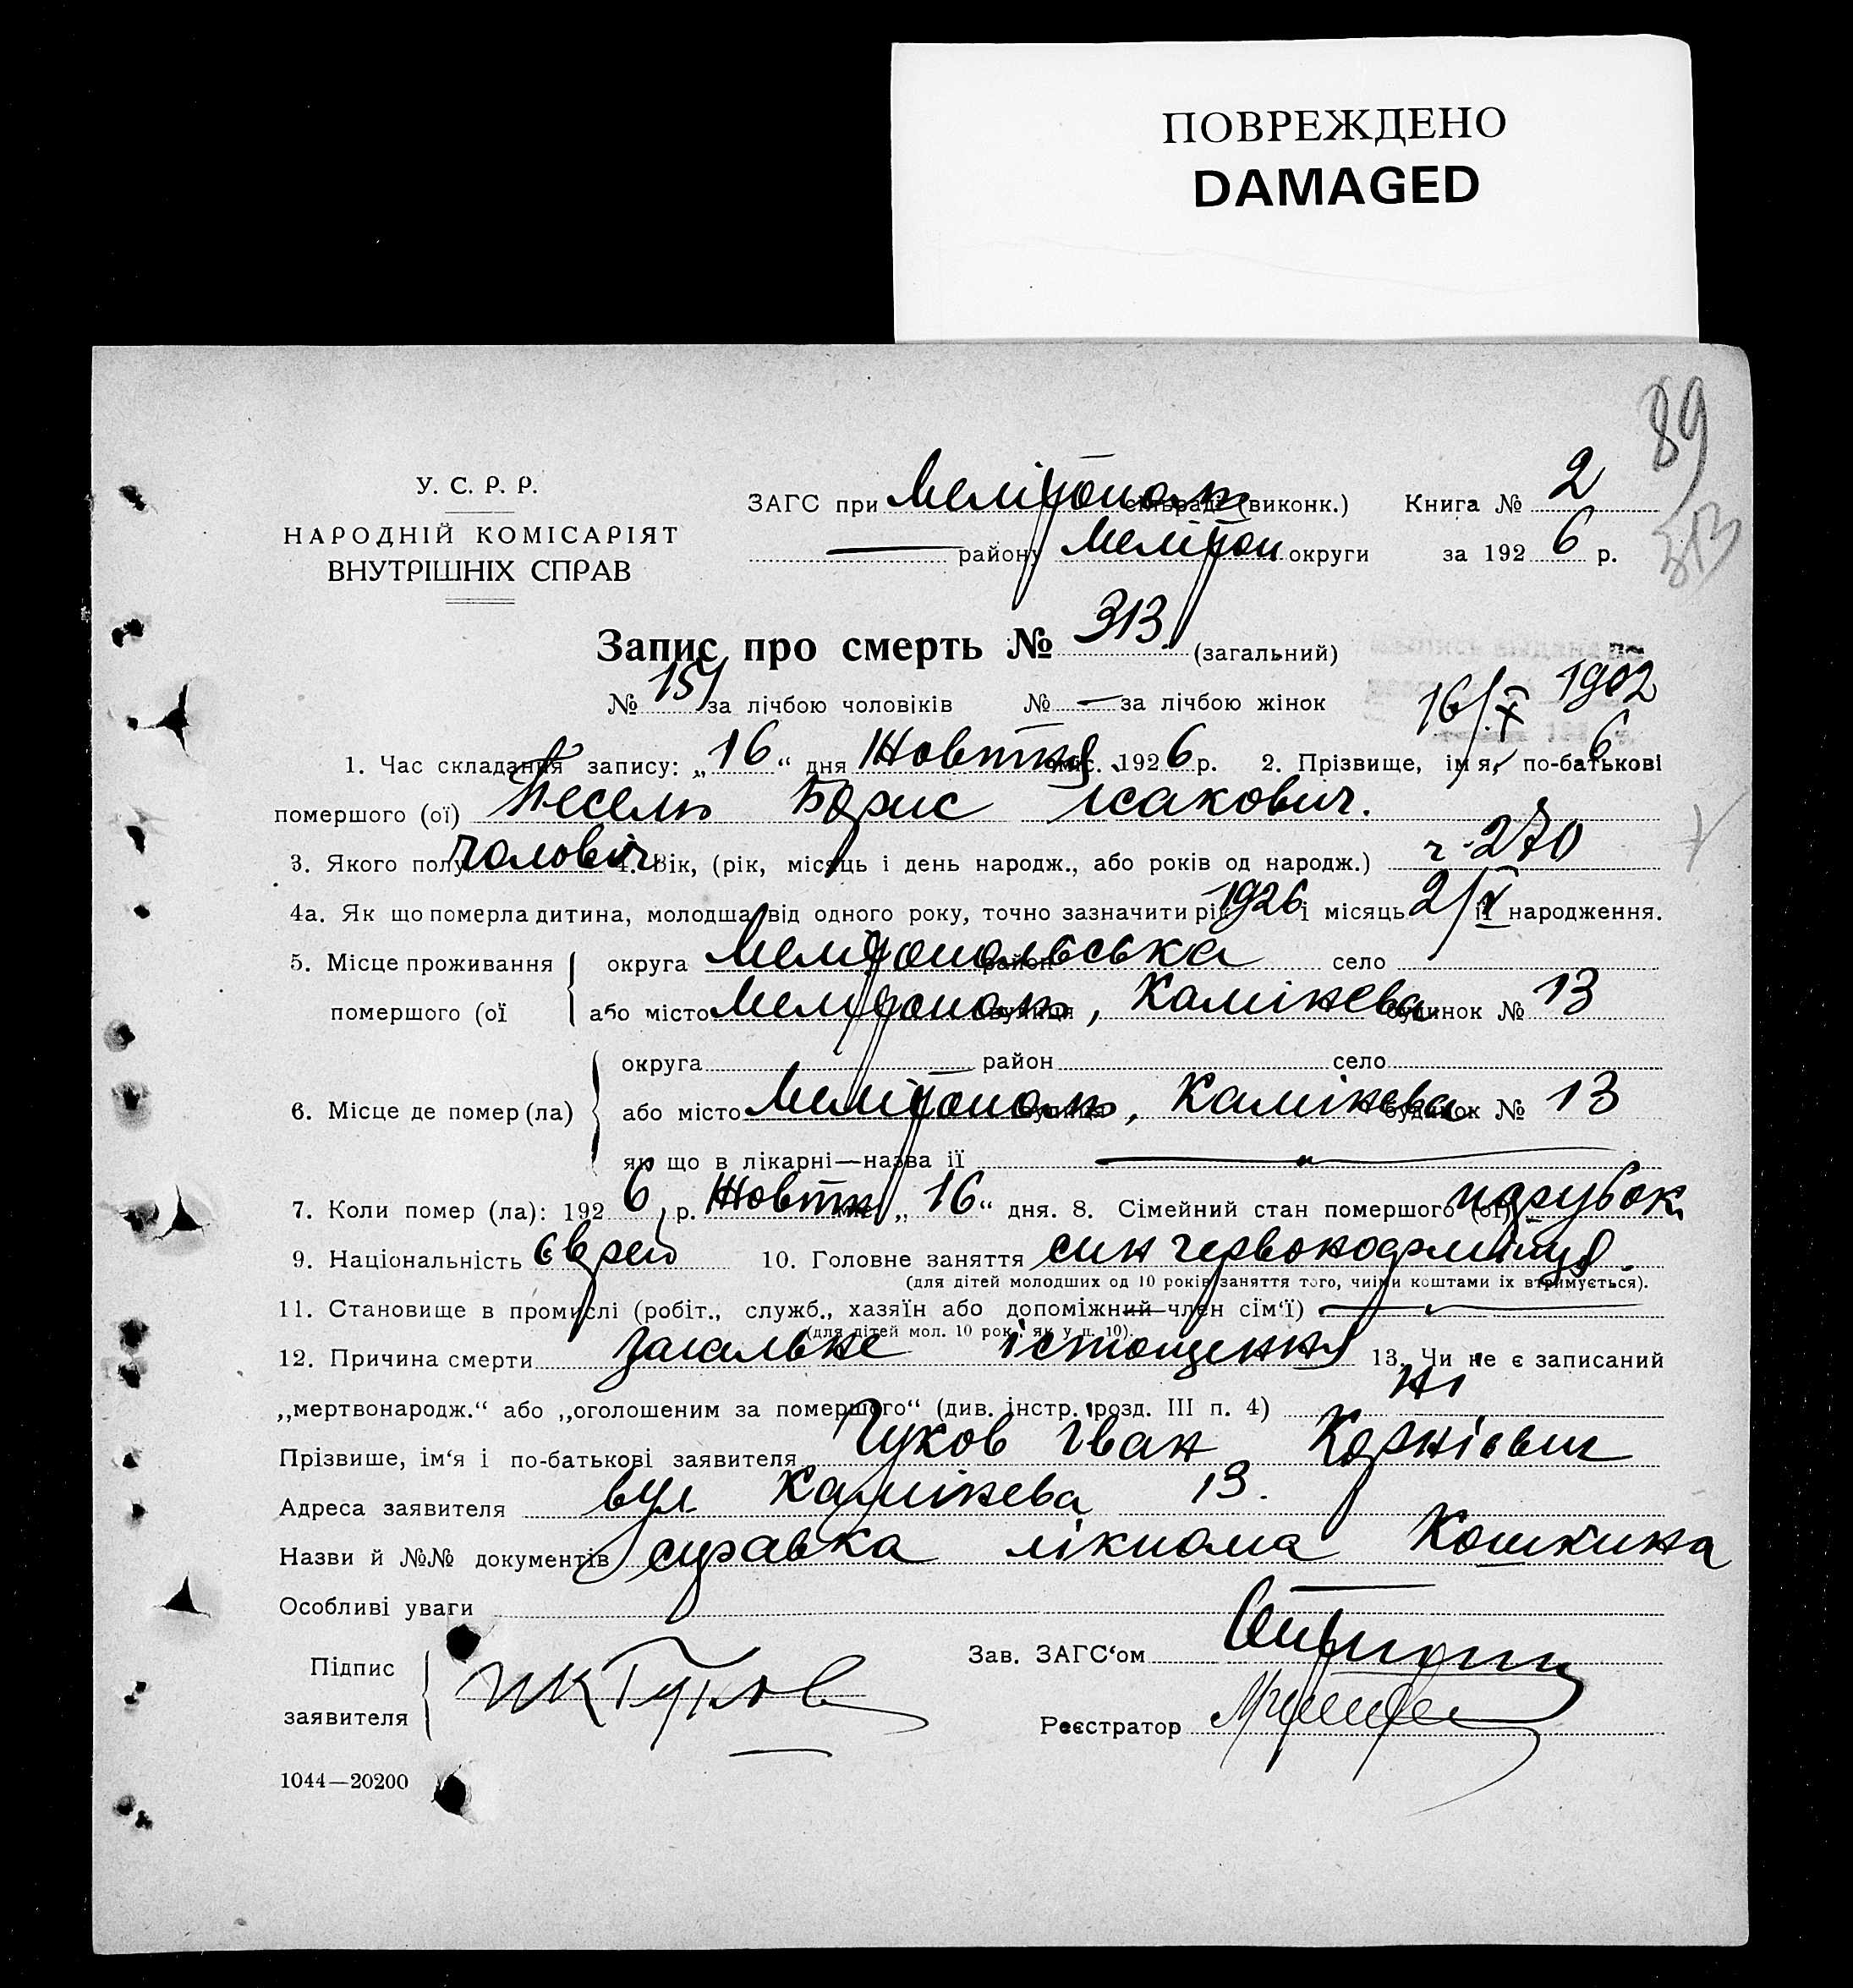 ПОВРЕЖДЕНО
DAMAGED
89
313
У. С. Р. Р.
НАРОДНІЙ КОМІСАРІЯТ
ВНУТРІШНІХ СПРАВ
ЗАГС при Мелітополь сільраді (виконк.) Книга № 2
— району Мелітоп округи за 1926 р.
Запис про смерть № 313 (загальний)
№ 157 за лічбою чоловіків № — за лічбою жінок
16/X 1902
6
1. Час складання запису: „16“ дня Жовтня міс. 1926 р. 2. Прізвище, ім'я, по-батькові
помершого (ої) Песель Борис Ісакович.
3. Якого полу чоловіч. 4. Вік, (рік, місяць і день народж., або років од народж.) ч-270
4а. Як що померла дитина, молодша від одного року, точно зазначити рік 1926 і місяць 2/V її народження.
5. Місце проживання округа Мелітопольська район село
помершого (ої або місто Мелітополь, вулиця Камінева будинок № 13
округа район село
6. Місце де помер (ла) або місто Мелітополь, вулиця Камінева будинок № 13
як що в лікарні—назва її —
7. Коли помер (ла): 1926 р. Жовтня міс. „16“ дня. 8. Сімейний стан помершого (ої) парубок
9. Національність Єврей 10. Головне заняття син червоноармійця.
(для дітей молодших од 10 років заняття того, чиїми коштами їх втримується).
11. Становище в промислі (робіт., служб., хазяїн або допоміжний член сім'ї) —
(для дітей мол. 10 рок. як у п. 10).
12. Причина смерти загальне істощення 13. Чи не є записаний
„мертвонародж.“ або „оголошеним за помершого“ (див. інстр. розд. III п. 4) ні
Прізвише, ім'я і по-батькові заявителя Гуков Іван Корнієвич
Адреса заявителя вул Камінева 13.
Назви й №№ документів справка лікпома Кошкина
Особливі уваги
Підпис
заявителя ИК Гуков
Зав. ЗАГС'ом
Реєстратор
1044—20200